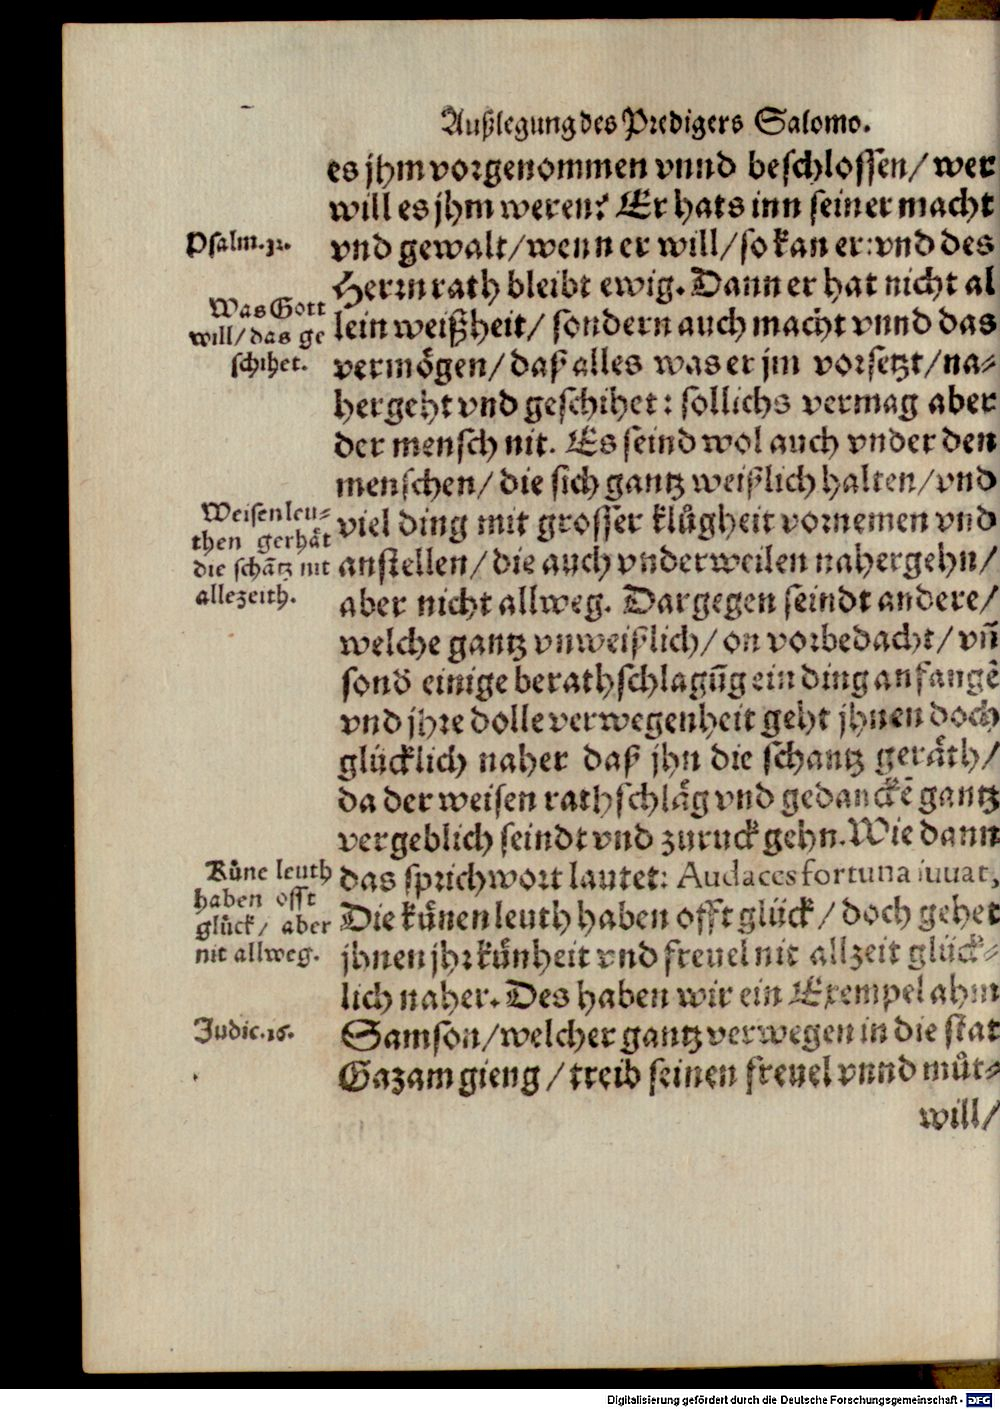 Außlegung des Predigers Salomo.
es jhm vorgenommen vnnd beschlossen/ wer
will es jhm weren? Er hats inn seiner macht
Psalm.32.
vnd gewalt/ wenn er will/ so kan er: vnd des
Herrn rath bleibt ewig. Dann er hat nicht al
Was Gott
will/ das ge
schihet.
lein weißheit/ sondern auch macht vnnd das
vermögen/ daß alles was er jm vorsetzt/ na-
hergeht vnd geschihet: sollichs vermag aber
der mensch nit. Es seind wol auch vnder den
menschen/ die sich gantz weißlich halten/ vnd
Weisen leu-
then gerhåt
die schātz nit
allezeith.
viel ding mit grosser klůgheit vornemen vnd
anstellen/ die auch vnderweilen nahergehn/
aber nicht allweg. Dargegen seindt andere/
welche gantz vnweißlich/ on vorbedacht/ vñ
sond einige berathschlagūg ein ding anfangē
vnd jhre dolle verwegenheit geht jhnen doch
glücklich naher daß jhn die schantz geråth/
da der weisen rathschläg vnd gedanckē gantz
vergeblich seindt vnd zuruck gehn. Wie dann
Küne leuth
haben offt
glück/ aber
nit allweg.
das sprichwort lautet: Audaces fortuna iuuat,
Die künen leuth haben offt glück/ doch gehet
jhnen jhr künheit vnd freuel nit allzeit glück-
lich naher. Des haben wir ein Exempel ahm
Judic.16.
Samson/ welcher gantz verwegen in die stat
Gazam gieng/ treib seinen freuel vnnd můt-
will/
Digitalisierung gefördert durch die Deutsche Forschungsgemeinschaft - DFG